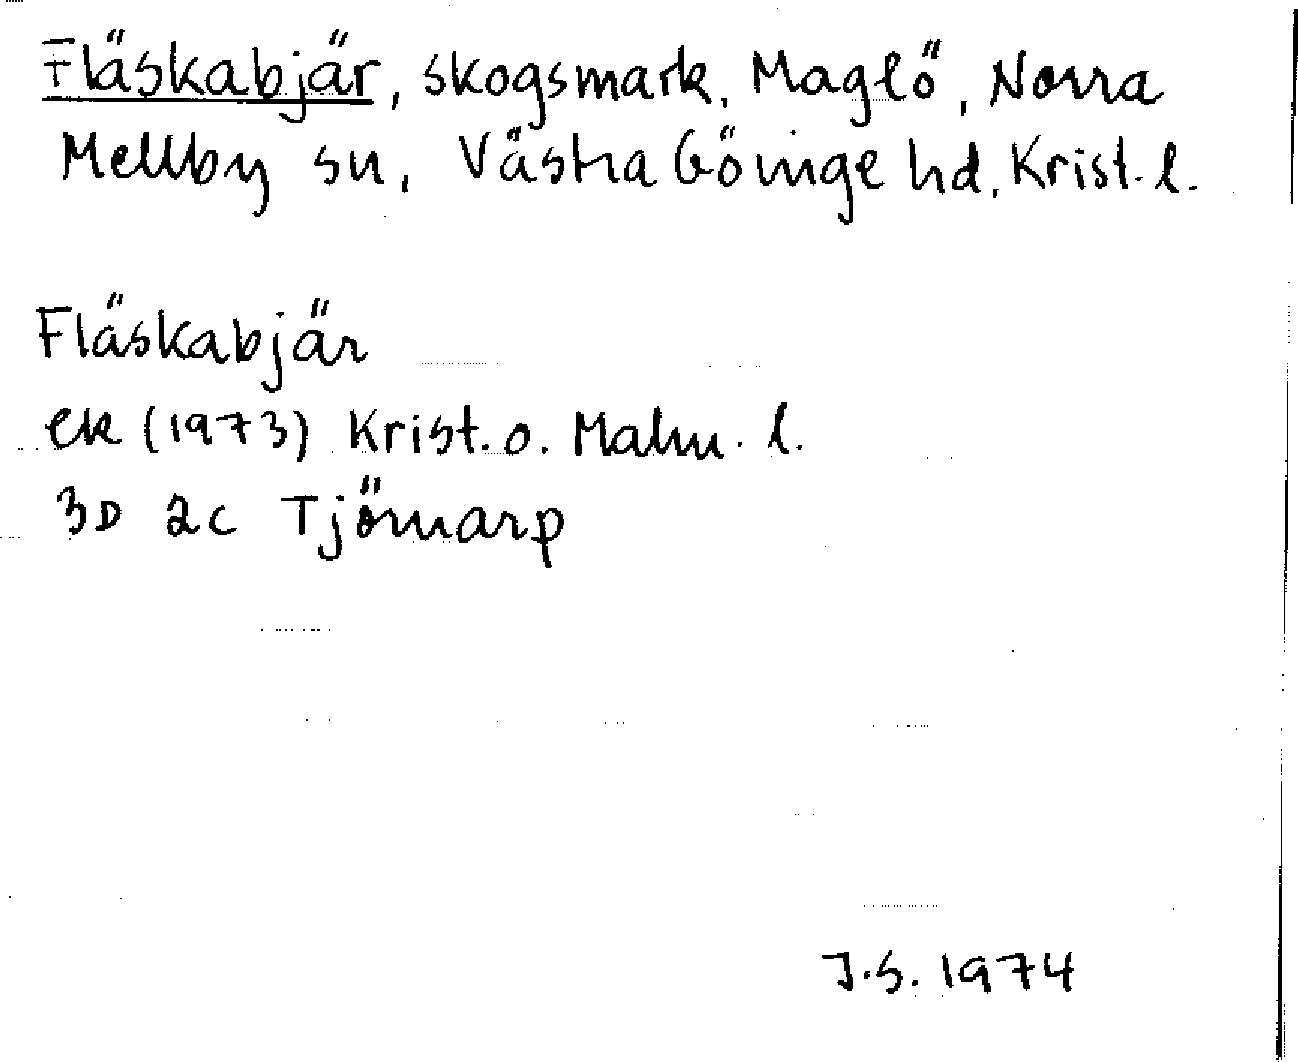 Fläskabjär, skogsmark, Maglö, Norra
Mellby sn, Västra Göinge hd, Krist. l.
Fläskabjär
ek (1973) Krist. o. Malm. l.
3D 2c Tjörnarp
J.S. 1974